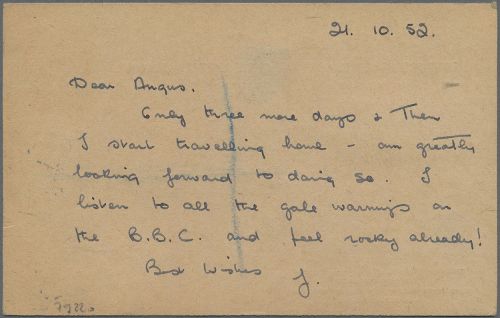 21. 10. 52.
Dear Angus,
Only three more days & Then
I start travelling home - am greatly
looking forward to doing so. I
listen to all the gale warnings on
the B.B.C. and feel rocky already!
Best Wishes J.